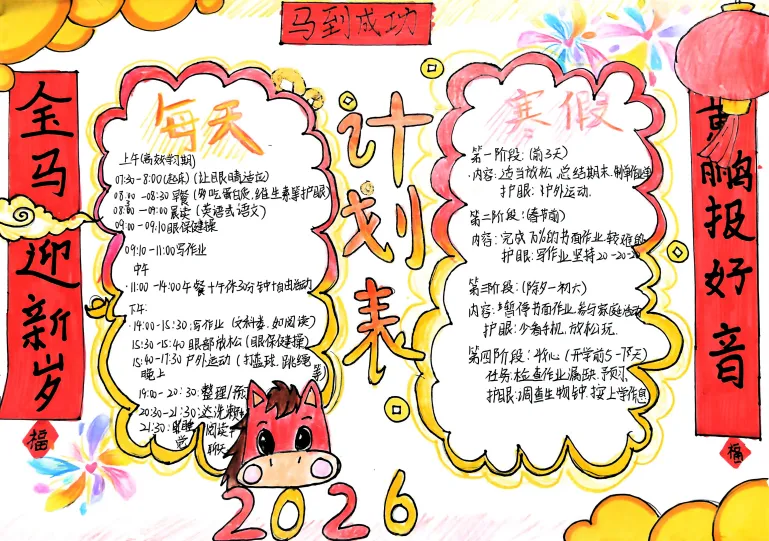 马到成功
金马迎新岁
福
每天
上午(高效学习期)
07:30-8:00(起床)(让眼睛适应)
08:00-08:30早餐(多吃蛋白质,维生素等护眼)
08:30-09:00晨读(英语或语文)
09:00-09:10眼保健操
09:10-11:00写作业
中午
·11:00-14:00午餐+午休30分钟+自由活动
下午:
·14:00-15:30:写作业(文科类,如阅读)
15:30-15:40眼部放松(眼保健操)
15:40-17:30户外运动(打篮球,跳绳等)
晚上
19:00-20:30:整理/预
20:30-21:30:洗漱
阅读
21:30:睡觉
聊天
2026
计划表
寒假
第一阶段:(前3天)
·内容:适当放松,总结期末,制
护眼:户外运动.
第二阶段:(春节前)
内容:完成70%的书面作业,较难的
护眼:写作业坚持20-20-20
第三阶段:(除夕-初六)
内容:暂停书面作业,参与家庭活动
护眼:少看手机,放松玩.
第四阶段:收心(开学前5-7天)
任务:检查作业漏缺.预习
护眼:调查生物钟,按上学作息
鹏报好音
福